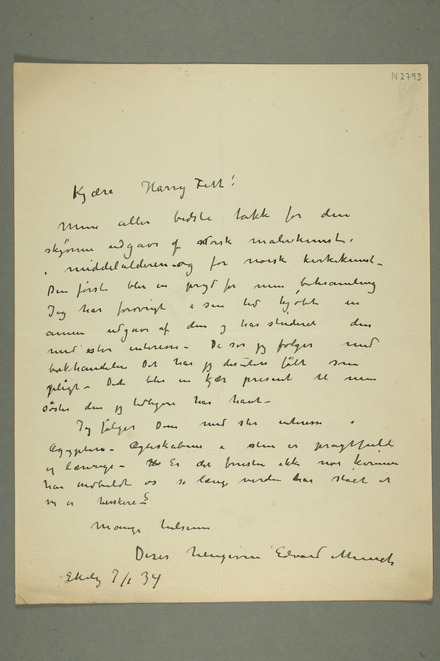 N 2793
Kjære Harry Fett!
Mine aller bedste takk for den
skjönne udgave af Norsk malerkunst
i middelalderen og for norsk kirkekunst –
Den förste blir en pryd for min boksamling
Jeg har forövrigt i sin tid kjöbt en
annen udgave af den og har studeret den
med stor interesse – De ser jeg følger med
bokhandelen Det har jeg desuten følt som
pligt – Dette blir en kjær present til min
söster den jeg tidligere har havt –
Jeg følger Dem med stor interesse i
Ægypten – Ægteskabene i sten er pragtfulde
og lærerige – Er det forresten ikke noe kvinnen
har indbildt os så længe verden har stået at
vi er herskere?
Mange hilsener
Deres hengivne Edvard Munch
Ekely 7/1 34